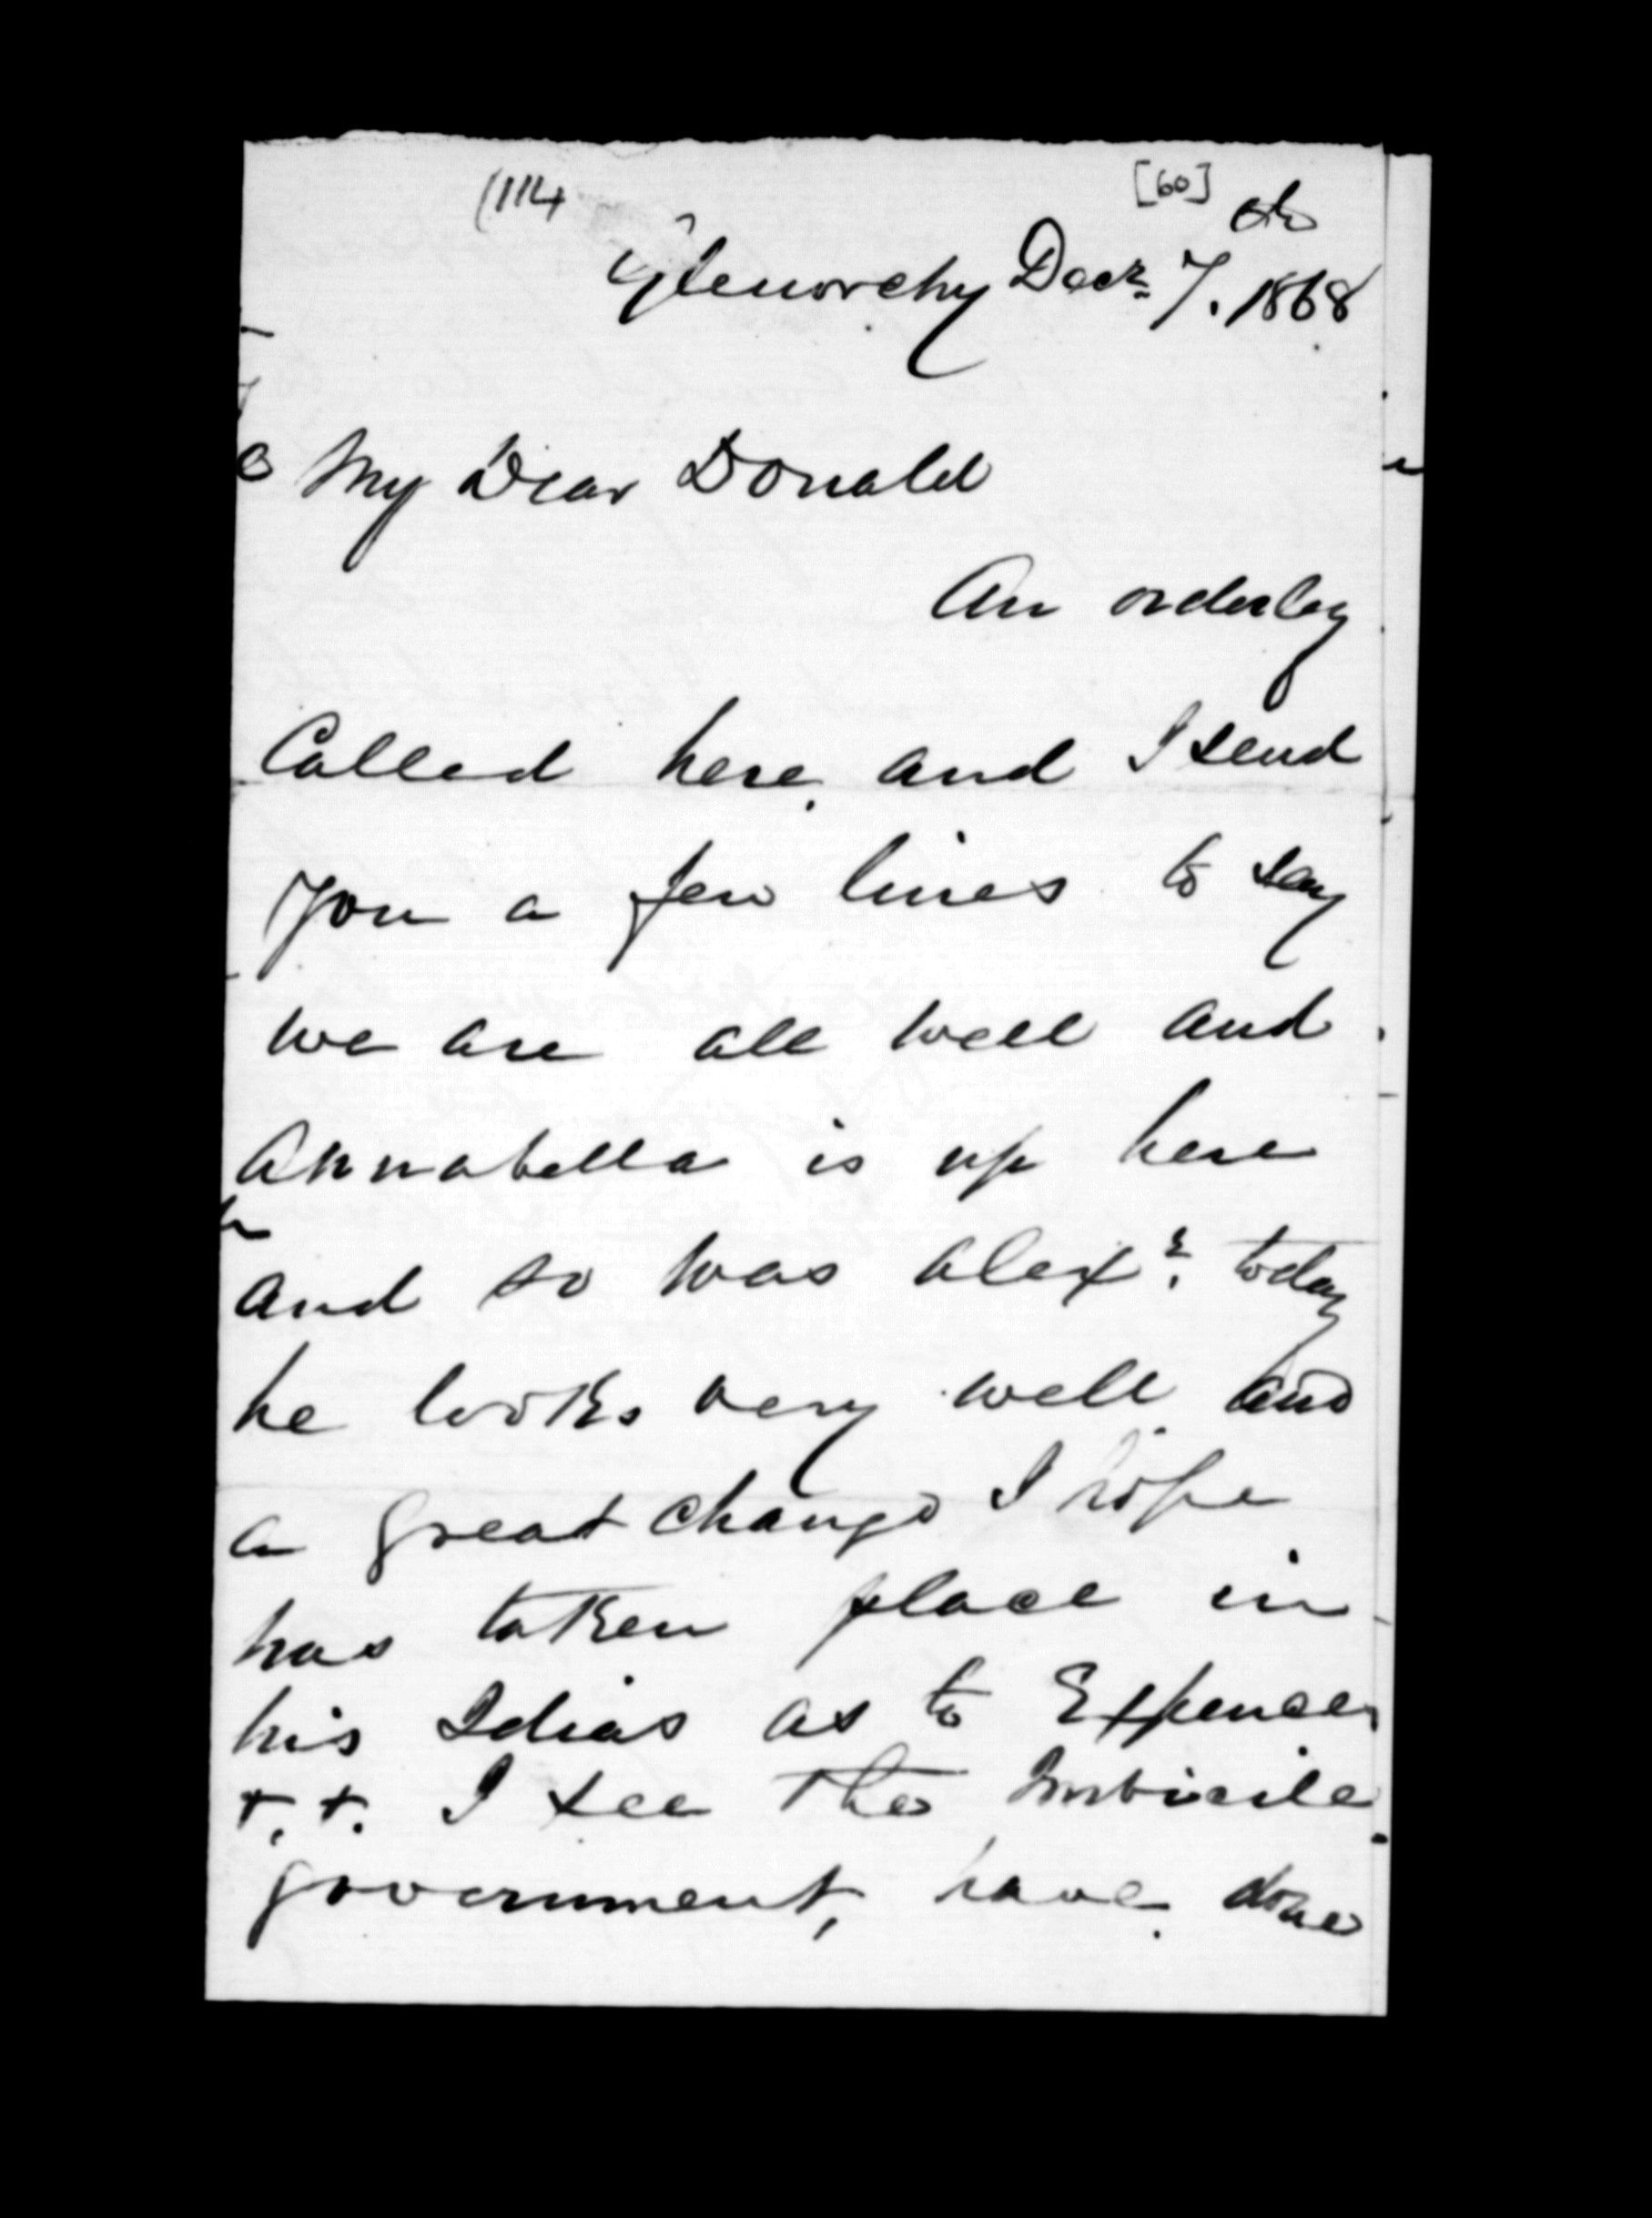 (114
[60]
Glenorchy Decr. 7th. 1868
My Dear Donald
An orderley
Called here, and I send
you a few lines to say
we are all well and
Annabella is up here
and so was Alexr. today
he looks very well and
a great change I hope
has taken place in
his Idias as to Expences
+.+. I see the Imbicile
government, have done